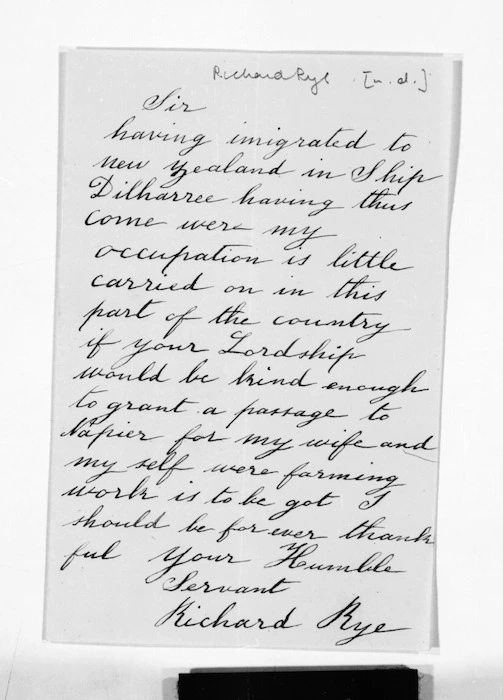 Richard Rye [n.d.]
Sir
having imigrated to
new zealand in Ship
Dilharree having thus
come were my
occupation is little
carried on in this
part of the country
if your Lordship
would be kind enough
to grant a passage to
Napier for my wife and
my self were farming
work is to be got I
should be for ever thank
ful your Humble
Servant
Richard Rye